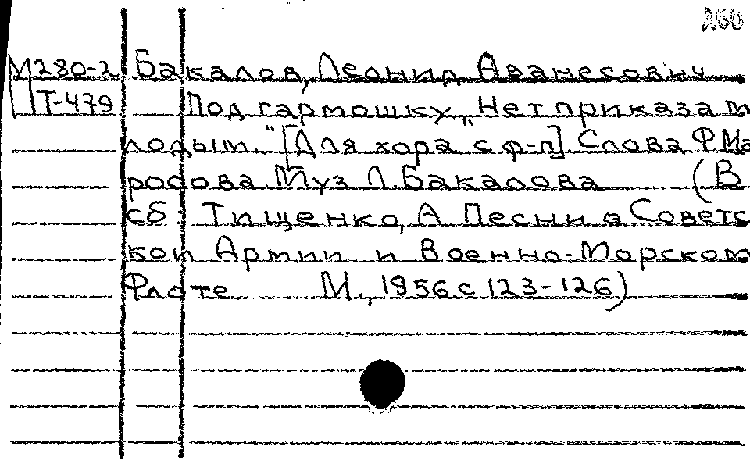 260
М280-2 Бакалов, Леонид Аванесович
Т-479 Под гармошку „Нет приказа м
лодым." [Для хора с ф-п] Слова Ф Ма
родова Муз Л. Бакалова (В
сб: Тищенко, А Песни о Советс
кой Армии и Военно-Морском
Флоте М., 1956 с 123-126)